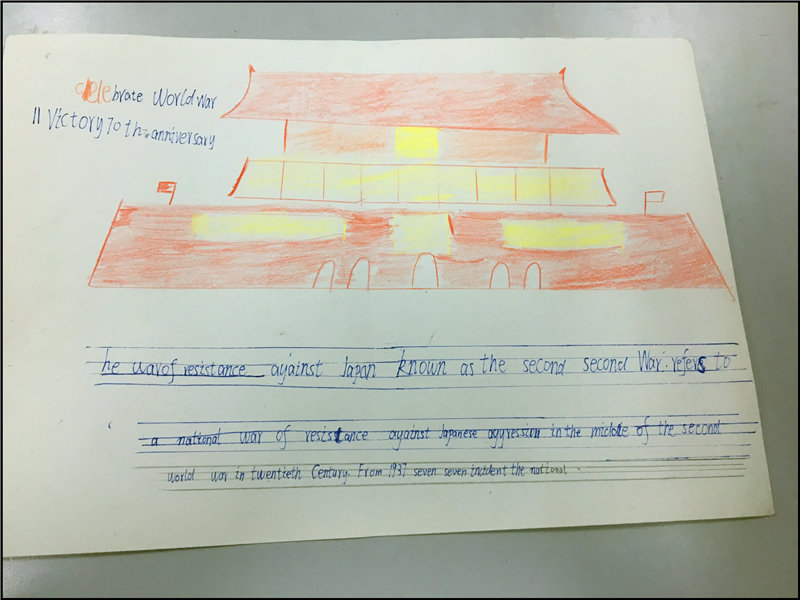 celebrate World War
II Victory 70 th anniversary
he war of resistance against Japan known as the second second War. refers to
a national war of resistance against Japanese aggression in the middle of the second
world war in twentieth Century. From 1937 seven seven incident the national